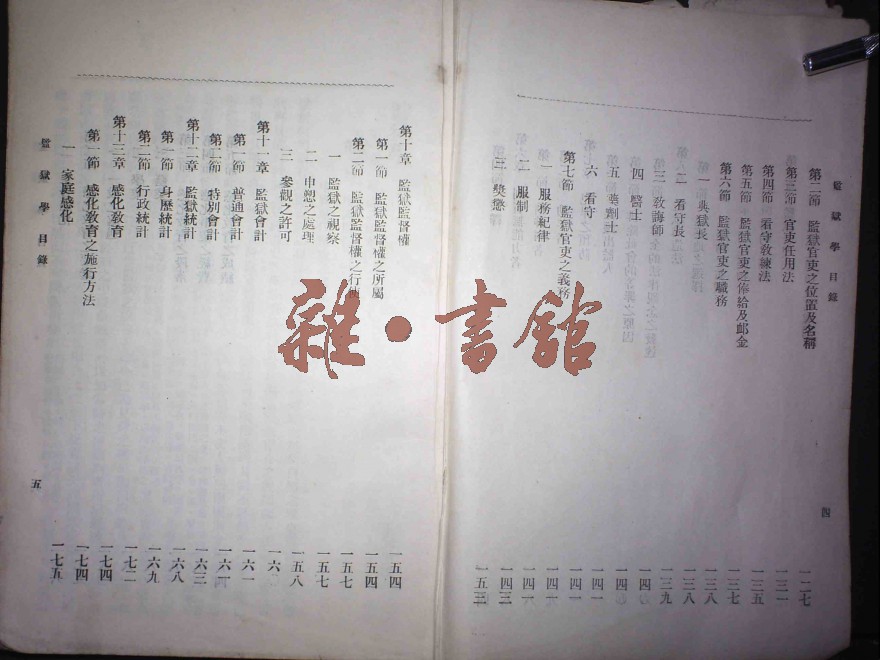 監獄學 目錄
第二節 監獄官吏之位置及名稱 一二七
第三節 官吏任用法 一三一
第四節 看守教練法 一三五
第五節 監獄官吏之俸給及卹金 一三七
第六節 監獄官吏之職務 一三八
一 典獄長 一三八
二 看守長 一三九
三 教誨師
四 醫士
五 藥劑士 一四一
六 看守 一四一
第七節 監獄官吏之義務
一 服務紀律
二 服制
三 獎懲 一五三
四
第十章 監獄監督權 一五四
第一節 監獄監督權之所屬 一五四
第二節 監獄監督權之行使 一五七
一 監獄之視察 一五七
二 申愬之處理 一五八
三 參觀之許可 一六〇
第十一章 監獄會計 一六一
第一節 普通會計 一六一
第二節 特別會計 一六三
第十二章 監獄統計 一六八
第一節 身歷統計 一六九
第二節 行政統計 一七二
第十三章 感化教育 一七四
第一節 感化教育之施行方法 一七四
一 家庭感化 一七五
監獄學 目錄
五
雜·書館